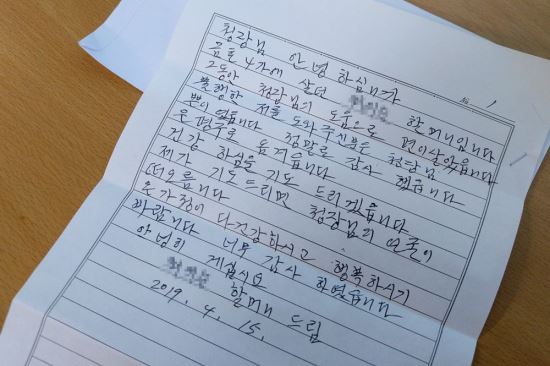 청장님 안녕 하십니까
금호 4가에 살던 할머니입니다
그동안 청장님의 도움으로 편이살았읍니다
불행한 저를 도와주신분은 청장님
뿐이 없읍니다 정말로 감사 했습니다
은평구로 옮겨읍니다
건강 하심을 기도 드리겠읍니다
제가 기도드리면 청장님의 얼굴이
떠오릅니다
온가정이 다건강하시고 행복하시기
바랍니다 너무 감사 하였습니다
안녕히 계십시요
할머니 드림
2019. 4. 15.